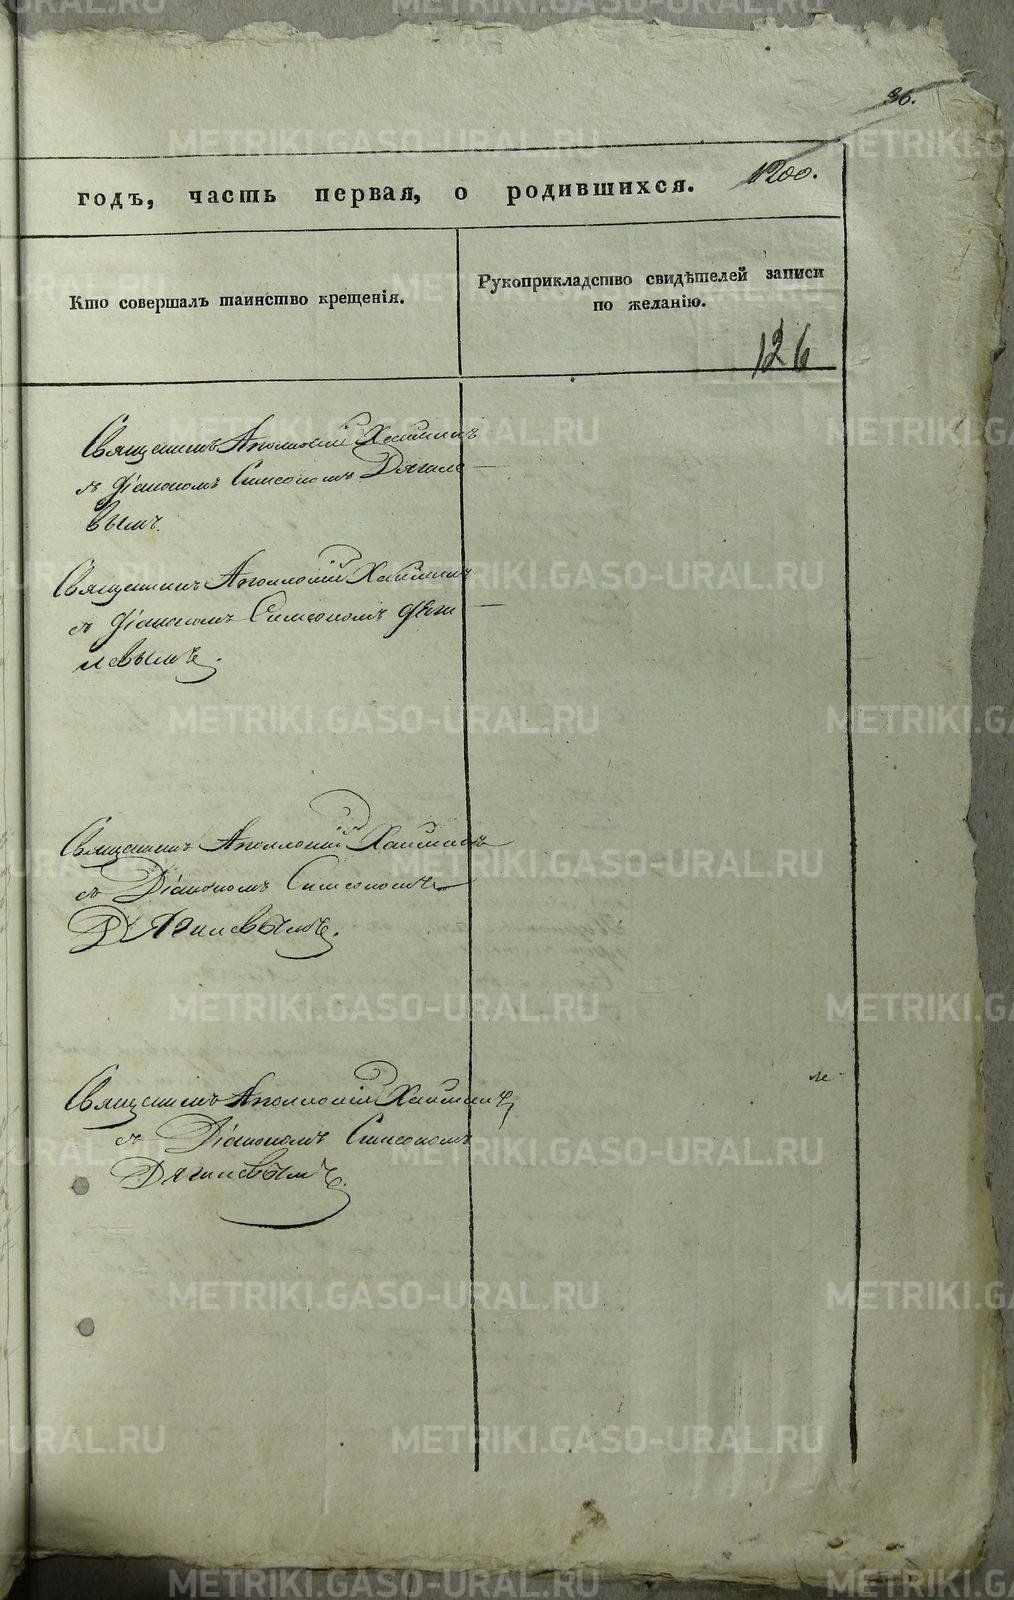 36.
годъ, часть первая, о родившихся. 1200.
Кто совершалъ таинство крещенія.
Рукоприкладство свидѣтелей записи
по желанію.
126
Священникъ Аполлоній
съ Діакономъ Симеономъ Дягиле
вымъ.
Священникъ Аполлоній
съ Діакономъ Симеономъ Дяги
левымъ.
Священникъ Аполлоній
съ Діакономъ Симеономъ
Дягилевымъ.
Священникъ Аполлоній
съ Діакономъ Симеономъ
Дягилевымъ.
METRIKI.GASO-URAL.RU